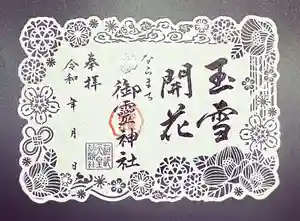 玉雪
開花
ならまち
御霊神社
奉拝
令和 年 月 日